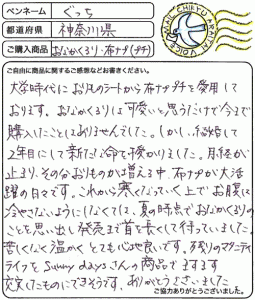 ペンネーム ぐっち
都道府県 神奈川県
ご購入商品 おなかくるり・布ナプ(プチ)
MAIL CHIKYU ARATAI VOICE
ご自由に商品に関するご感想などお書きください。
大学時代におりものシートから布ナププチを愛用して
おります。おなかくるりは可愛いと思うだけで今まで
購入したことはありませんでした。しかし、結婚して
2年目にして新たな命を授かりました。月経が
止まり、その分おりものは増え、布ナプが大活
躍の日々です。これから寒くなっていく上でお腹は
冷やさないようにしなくては、夏の時点でおなかくるりの
ことを思い出し発売まで首を長くして待っていました。
苦しくなく温かくとても心地良いです。残りのマタニティ
ライフをSunny daysさんの商品でますます
充実したものにできそうです。ありがとうございました
ご協力ありがとうございました。